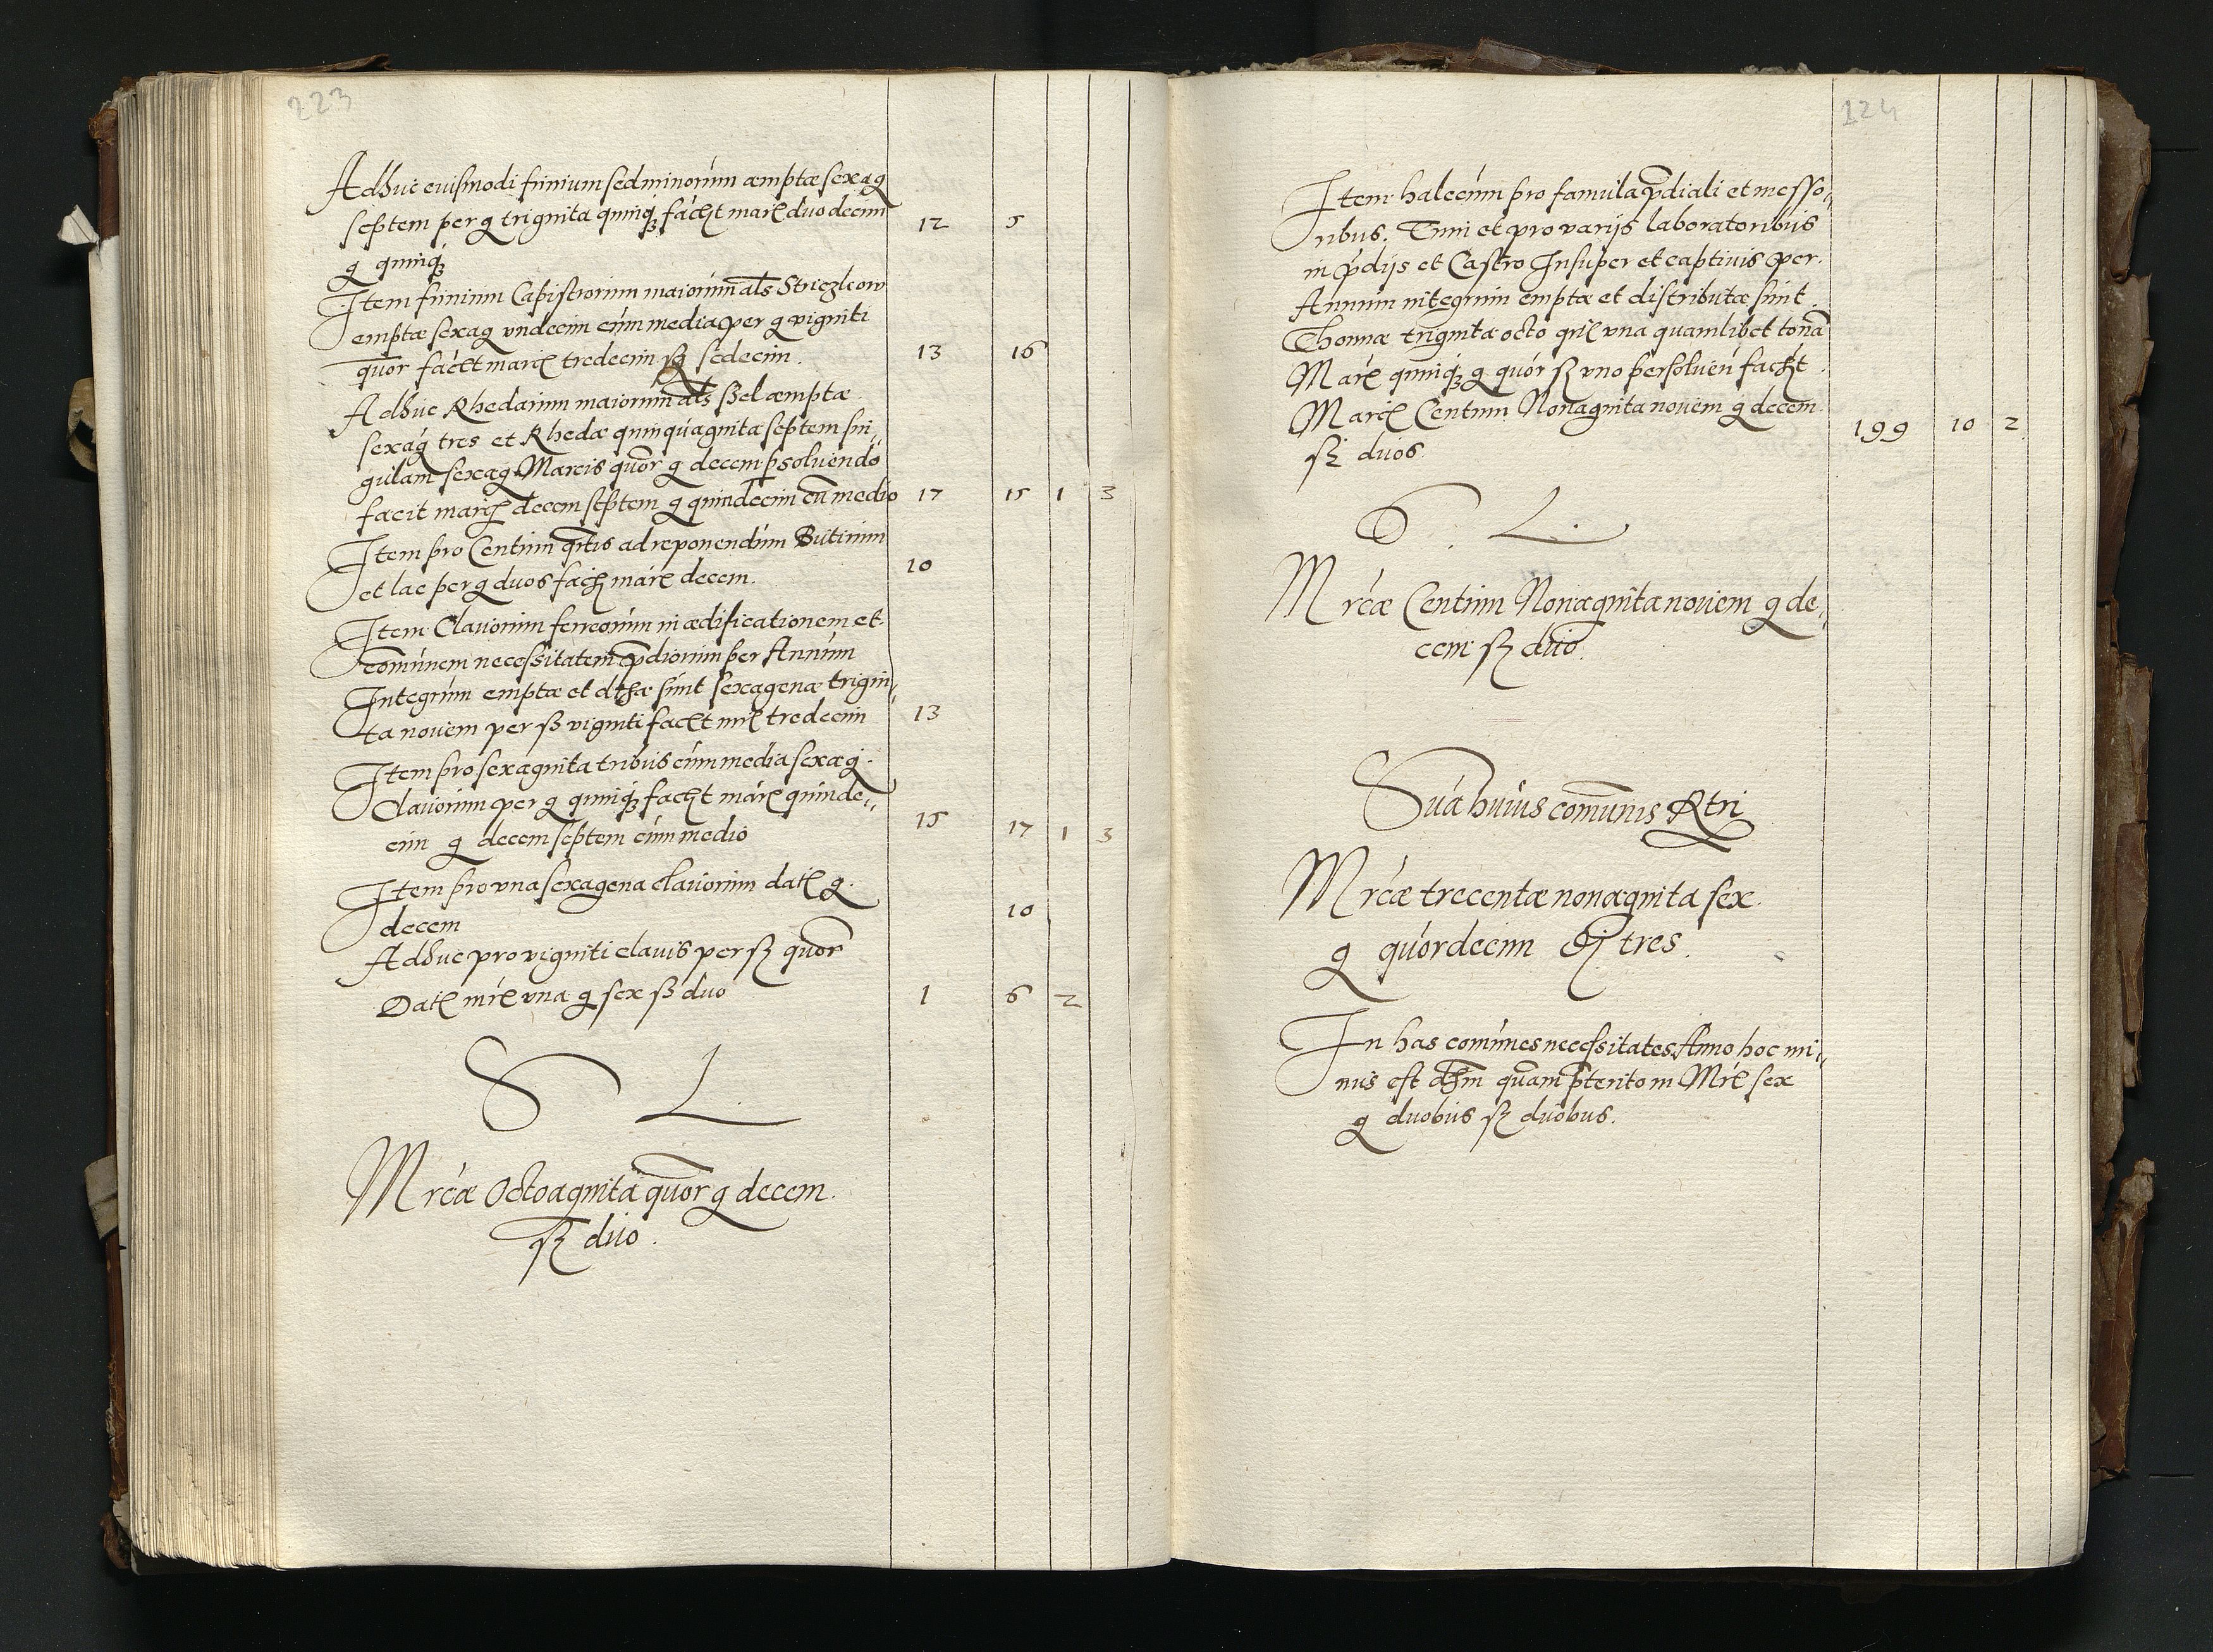 223
Adhuc euismodi funium sed minorum æmptæ sexag
septem per g triginta quinq; fac̃t marc̃ duodecim 12 5
g quinq;
Item funium Capistrorum maiorum al̃s Striczkow
emptæ sexag vndecim cum media per g viginti
quor fac̃t marc̃ tredecim ß sedecim. 13 16
Adhuc Rhedarum maiorum al̃s ßel æmptæ
sexag tres et Rhedæ quinquaginta septem sin„
gulam sexag Marcis quor g decem psoluendo
facit marc̃ decem septem g quindecim cũ medio 17 15 1 3
Item pro Centum q̃rtis ad reponendum Butirum
et lac per g duos fac̃ marc̃ decem. 10
Item Clauorum ferreorum in ædificationem et
comunem necessitatem p̃diorum per Annum
Integrum emptæ et dthæ sunt sexagenæ trigin„
ta nouem per ß viginti fac̃t mrc̃ tredecim 13
Item pro sexaginta tribus cum media sexag
Clauorum per g quinq; fac̃t marc̃ quinde„
cim g decem septem cum medio 15 17 1 3
Item pro vna sexagena clauorum dat̃ g
decem 10
Adhuc pro viginti clauis per ß quor
Dat̃ mrc̃ vna g sex ß duo 1 6 2
S L.
Mrcæ Octoaginta quor g decem.
ß duo.
124
Item halecum pro famula p̃diali et messo„
ribus. Tum et pro varijs laboratoribus
in p̃dijs et Castro Insuper et captiuis per
Annum integrum emptæ et distributæ sunt
Thonnæ triginta octo qr̃l vna quamlibet tonã
Marc̃ quinq; g quor ß vno persoluen fac̃t
Marc̃ Centum Nonaginta nouem g decem 199 10 2
ß duos.
S. L.
Mrcæ Centum Nonaginta nouem g de„
cem ß duo.
Suã huius comunis Rtri
Mrcæ trecentæ nonaginta sex
g quordecim tres.
In has comunes necessitates Anno hoc mi„
nus est dthm quam p̃terito in Mrc̃ sex
g duobus ß duobus.